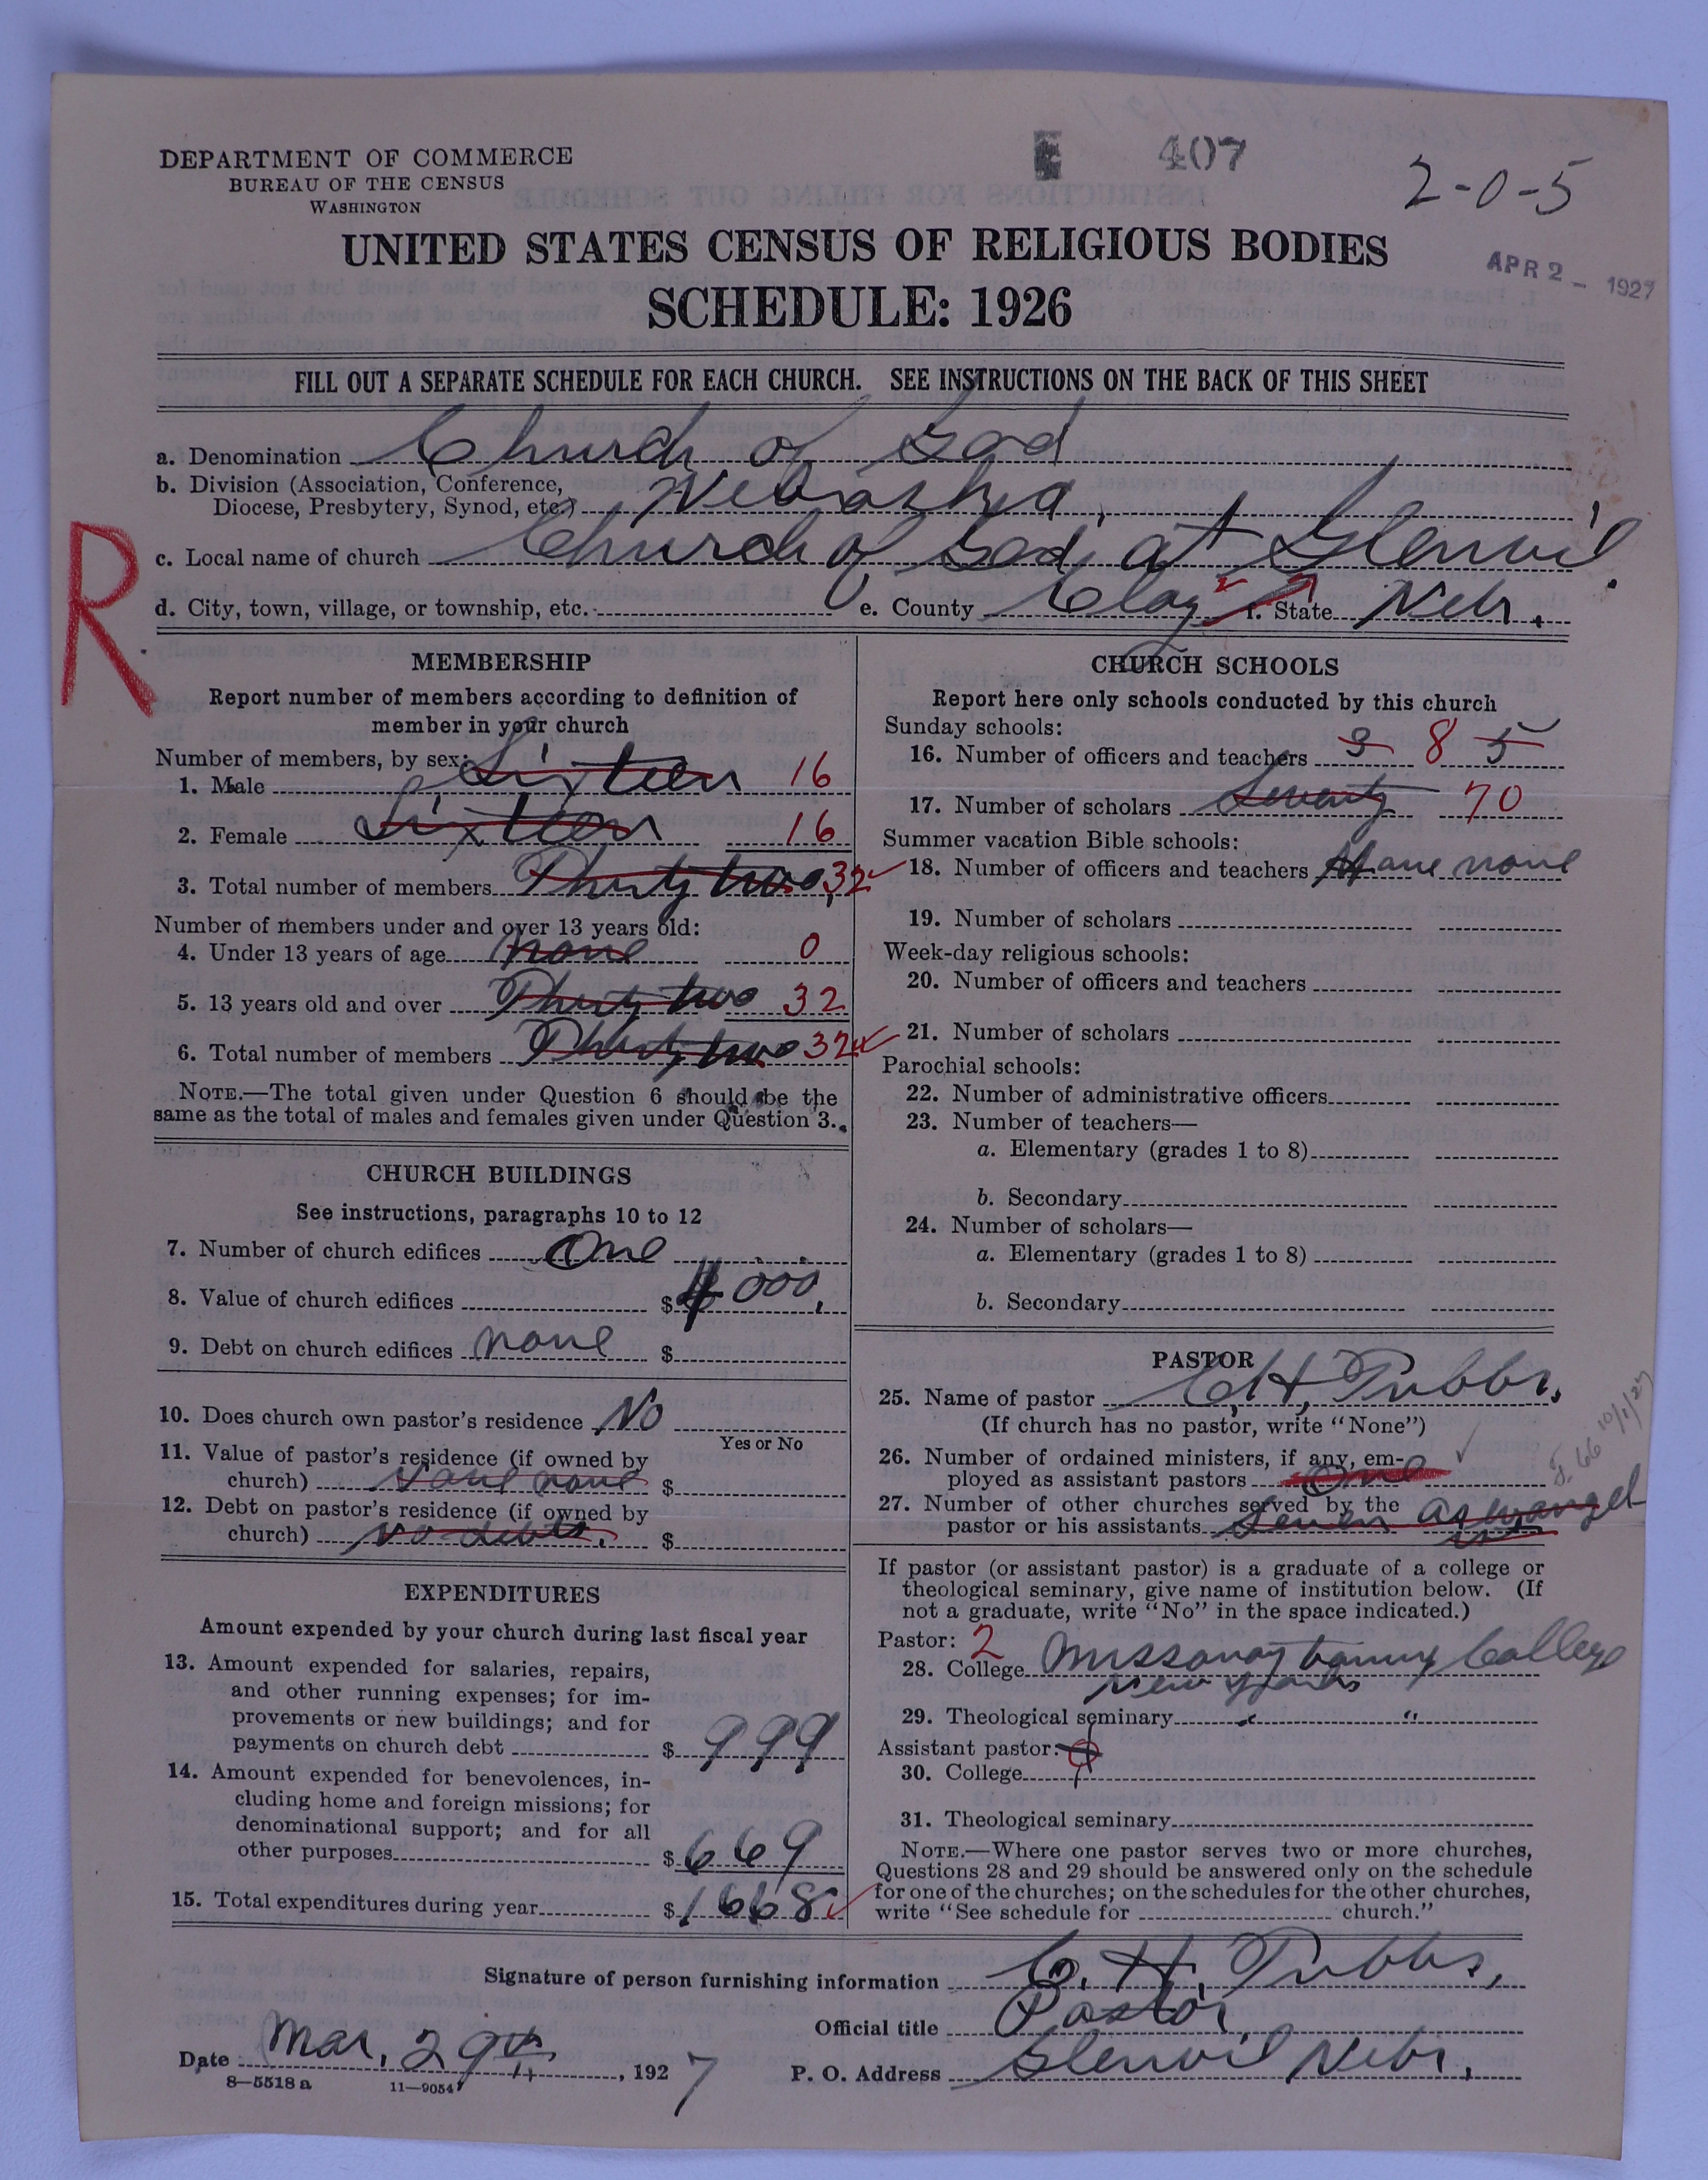 DEPARTMENT OF COMMERCE
BUREAU OF THE CENSUS
WASHINGTON
E 407
2-0-5
APR 2 - 1927
UNITED STATES CENSUS OF RELIGIOUS BODIES
SCHEDULE: 1926
FILL OUT A SEPARATE SCHEDULE FOR EACH CHURCH. SEE INSTRUCTIONS ON THE BACK OF THIS SHEET
a. Denomination Church of God
b. Division (Association, Conference,
Diocese, Presbytery, Synod, etc.) Nebraska,
R
c. Local name of church Church of God, at Glenvil.
d. City, town, village, or township, etc. e. County Clay f. State Nebr.
MEMBERSHIP
Report number of members according to definition of
member in your church
Number of members, by sex:
1. Male Sixteen 16
2. Female Sixteen 16
3. Total number of members Thirty two, 32
Number of members under and over 13 years old:
4. Under 13 years of age none 0
5. 13 years old and over Thirty two 32
6. Total number of members Thirty two 32
NOTE.—The total given under Question 6 should be the
same as the total of males and females given under Question 3.
CHURCH BUILDINGS
See instructions, paragraphs 10 to 12
7. Number of church edifices One
8. Value of church edifices $4000,
9. Debt on church edifices none $
10. Does church own pastor's residence No
Yes or No
11. Value of pastor's residence (if owned by
church) none $
12. Debt on pastor's residence (if owned by
church) no debts. $
EXPENDITURES
Amount expended by your church during last fiscal year
13. Amount expended for salaries, repairs,
and other running expenses; for im-
provements or new buildings; and for
payments on church debt $ 999
14. Amount expended for benevolences, in-
cluding home and foreign missions; for
denominational support; and for all
other purposes $ 669
15. Total expenditures during year $ 1668
CHURCH SCHOOLS
Report here only schools conducted by this church
Sunday schools:
16. Number of officers and teachers 3 8 5
17. Number of scholars Seventy 70
Summer vacation Bible schools:
18. Number of officers and teachers Have none
19. Number of scholars
Week-day religious schools:
20. Number of officers and teachers
21. Number of scholars
Parochial schools:
22. Number of administrative officers
23. Number of teachers—
a. Elementary (grades 1 to 8)
b. Secondary
24. Number of scholars—
a. Elementary (grades 1 to 8)
b. Secondary
PASTOR
25. Name of pastor C. H. Tubbs,
(If church has no pastor, write "None")
26. Number of ordained ministers, if any, em-
ployed as assistant pastors One
27. Number of other churches served by the
pastor or his assistants Seven as evangelist
10/1/27
If pastor (or assistant pastor) is a graduate of a college or
theological seminary, give name of institution below. (If
not a graduate, write "No" in the space indicated.)
Pastor: 2
28. College College
New
29. Theological seminary " "
Assistant pastor:
30. College
31. Theological seminary
NOTE.—Where one pastor serves two or more churches,
Questions 28 and 29 should be answered only on the schedule
for one of the churches; on the schedules for the other churches,
write "See schedule for church."
Signature of person furnishing information C. H. Tubbs,
Official title Pastor,
Date Mar. 29th, 1927 P. O. Address Glenvil Nebr.
8—5518 a 11—9054